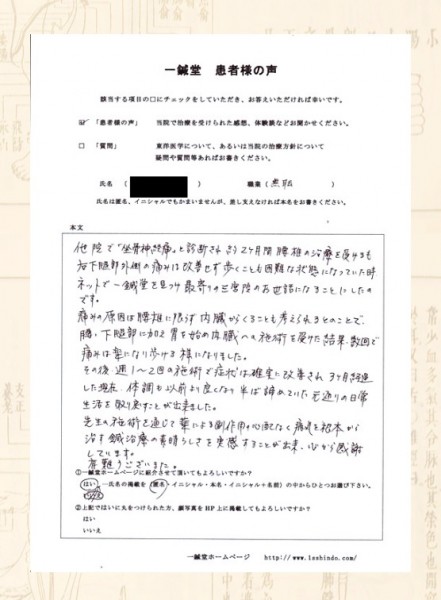 一鍼堂 患者様の声
該当する項目の□にチェックをしていただき、お答えいただければ幸いです。
☑ 「患者様の声」 当院で治療を受けられた感想、体験談などお聞かせください。
□ 「質問」 東洋医学について、あるいは当院の治療方針について
疑問や質問等あればお書きください。
氏名 ( ) 職業 ( 無職 )
氏名は匿名、イニシャルでもかまいませんが、差し支えなければ本名をお書きください。
本文
他院で「坐骨神経痛」と診断され約2ヶ月間腰椎の治療を受けるも
右下腿部外側の痛みは改善せず歩くことも困難な状態になっていた時
ネットで一鍼堂を見つけ最寄りの三宮院のお世話になることにしたの
です。
痛みの原因は腰椎に限らず内臓がくることも考えられるとのことで、
腰・下腿部に加え胃を始め内臓への施術を受けた結果、数回で
痛みは楽になり歩ける様になりました。
その後、週1〜2回の施術で症状は確実に改善され3ヶ月経過
した現在、体調も以前より良くなり半ば諦めていた元通りの日常
生活を取り戻すことが出来ました。
先生の施術を通じて薬による副作用の心配なく病気を根本から
治す鍼治療の素晴らしさを実感することが出来、心から感謝
しています。
有難うございました。
①一鍼堂ホームページに紹介させて頂いてもよろしいですか?
はい －氏名の掲載を(匿名・イニシャル・本名・イニシャル+名前)の中からひとつお選び下さい。
いいえ
②上記ではいに丸をつけられた方、顔写真をHP上に掲載してもよろしいですか?
はい
いいえ
一鍼堂ホームページ http://www.isshindo.com/